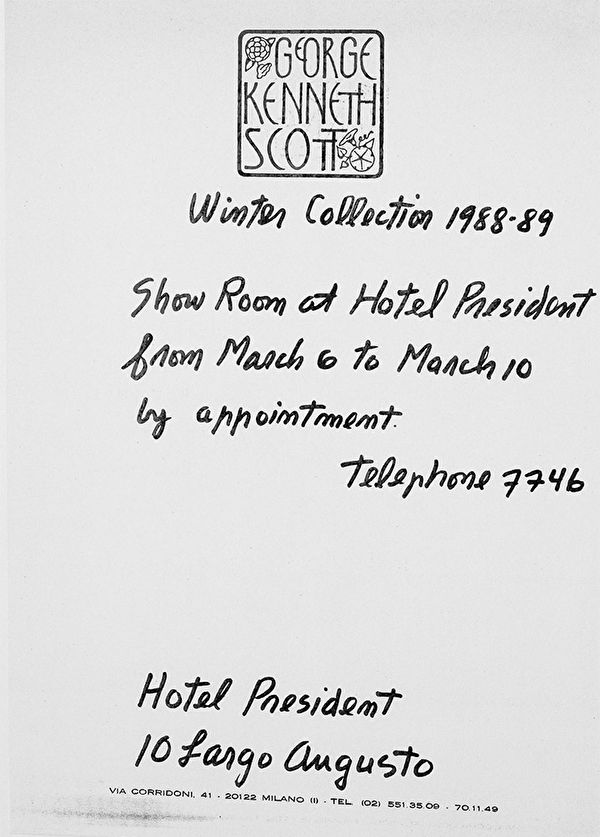 GEORGE
KENNETH
SCOTT
Winter Collection 1988-89
Show Room at Hotel President
from March 6 to March 10
by appointment.
Telephone 7746
Hotel President
10 Largo Augusto
VIA CORRIDONI, 41 - 20122 MILANO (I) - TEL. (02) 551.35.09 - 70.11.49